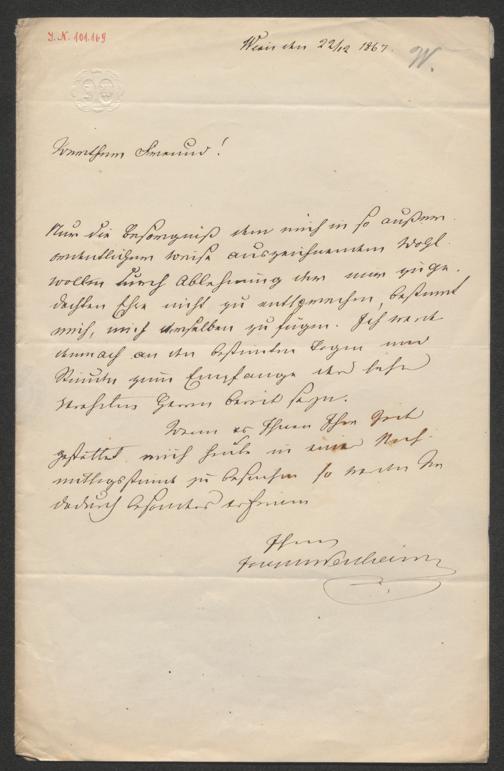 J. N. 101.169
Wien den 22/12 1867.
W.
Werthester Freund!
Nur die Besorgniß dem mich in so außer-
ordentlicher Weise auszeichnenden Wohl-
wollen durch Ablehnung der mir zuge-
dachten Ehre nicht zu entsprechen, bestimmt
mich, mich derselben zu fügen. Ich werde
demnach an den bestimmten Tagen und
Stunden zum Empfange der sehr
verehrten Herren bereit sein.
Wenn es Ihnen Ihre Zeit
gestattet mich heute in einer Nach-
mittagsstunde zu besuchen so werden Sie
dadurch besonders erfreuen
Ihren